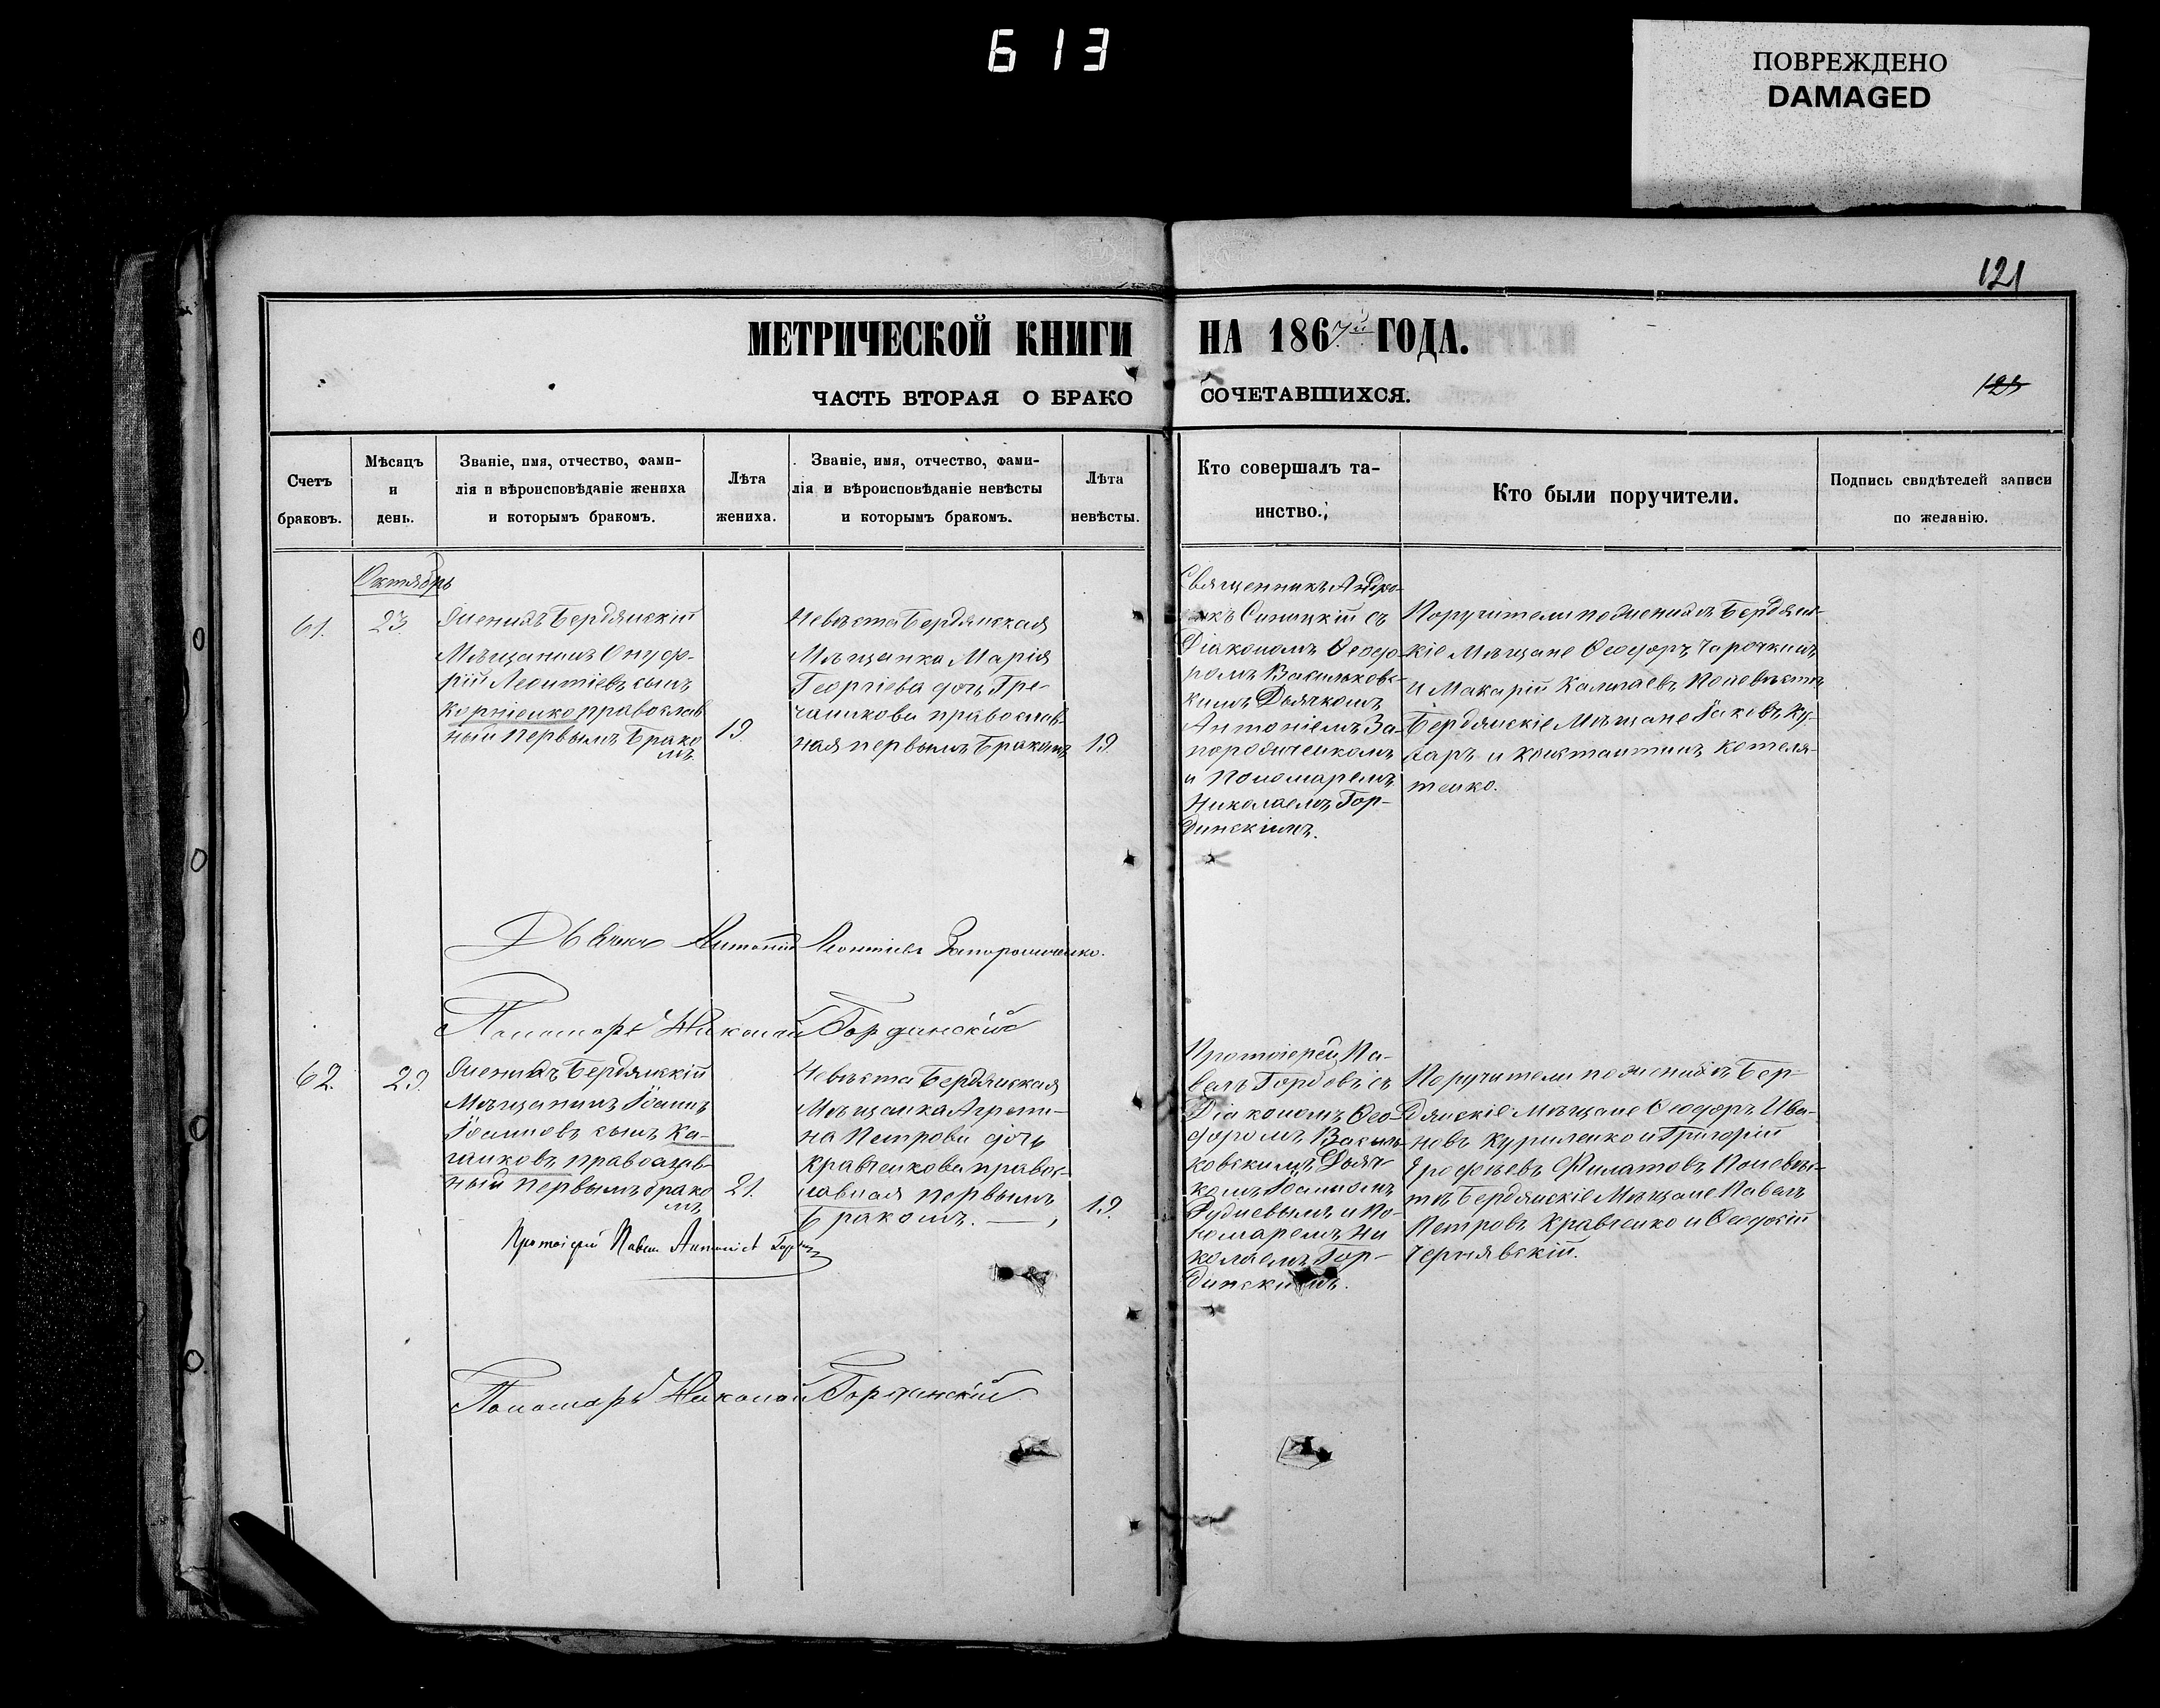 613
ПОВРЕЖДЕНО
DAMAGED
121
МЕТРИЧЕСКОЙ КНИГИ НА 1867й ГОДА.
ЧАСТЬ ВТОРАЯ О БРАКОСОЧЕТАВШИХСЯ.
123
Счетъ
браковъ.
Мѣсяцъ
и
день.
Званіе, имя, отчество, фами-
лія и вѣроисповѣданіе жениха
и которымъ бракомъ.
Лѣта
жениха.
Званіе, имя, отчество, фами-
лія и вѣроисповѣданіе невѣсты
и которымъ бракомъ.
Лѣта
невѣсты.
Кто совершалъ та-
инство.
Кто были поручители.
Подпись свидѣтелей записи
по желанію.
Октябрь
61.
23.
Женихъ Бердянскій
Мѣщанинъ Онуф-
рій Леонтіевъ сынъ
Корніенко православ
ный первымъ Брако
мъ
19
Невѣста Бердянская
Мѣщанка Марія
Георгіева дочь Гре-
чаникова православ-
ная первымъ Бракомъ
19.
Священникъ Андро-
никъ Синицкій съ
Діакономъ Ѳеодо-
ромъ Васильковс-
кимъ Дьячкомъ
Антоніемъ За-
порожченкомъ
и Пономаремъ
Николаемъ Гор-
динскимъ.
Поручители по женихѣ Бердянс-
кіе Мѣщане Ѳеодоръ
и Макарій Поневѣстѣ
Бердянскіе Мѣщане Іаковъ Ку-
харь и Константинъ Котеля-
тенко.
Дьячекъ Антоній Леонтіевъ Запорожченко.
Пономарь Николай Гординскій
62.
29.
Женихъ Бердянскій
Мѣщанинъ Іоаннъ
Іоанновъ сынъ Ка-
чановъ православ-
ный первымъ брако
мъ
21.
Невѣста Бердянская
Мѣщанка Агрипи-
на Петрова дочь
Кравченкова правос-
лавная первымъ
Бракомъ.
19.
Протоіерей Па-
велъ Горбовъ съ
Діакономъ Ѳео-
доромъ Василь-
ковскимъ Дьяч-
комъ Іоанномъ
Рудневымъ и По-
номаремъ Ни
колаемъ Гор-
динскимъ.
Поручители по женихѣ Бер-
дянскіе Мѣщане Ѳеодоръ Ива-
новъ Куриленко и Григорій
Филатовъ Поневѣс-
тѣ Бердянскіе Мѣщане Павелъ
Петровъ Кравченко и Ѳеодосій
Чернявскій.
Протоіерей Павелъ
Пономарь Николай Гординскій